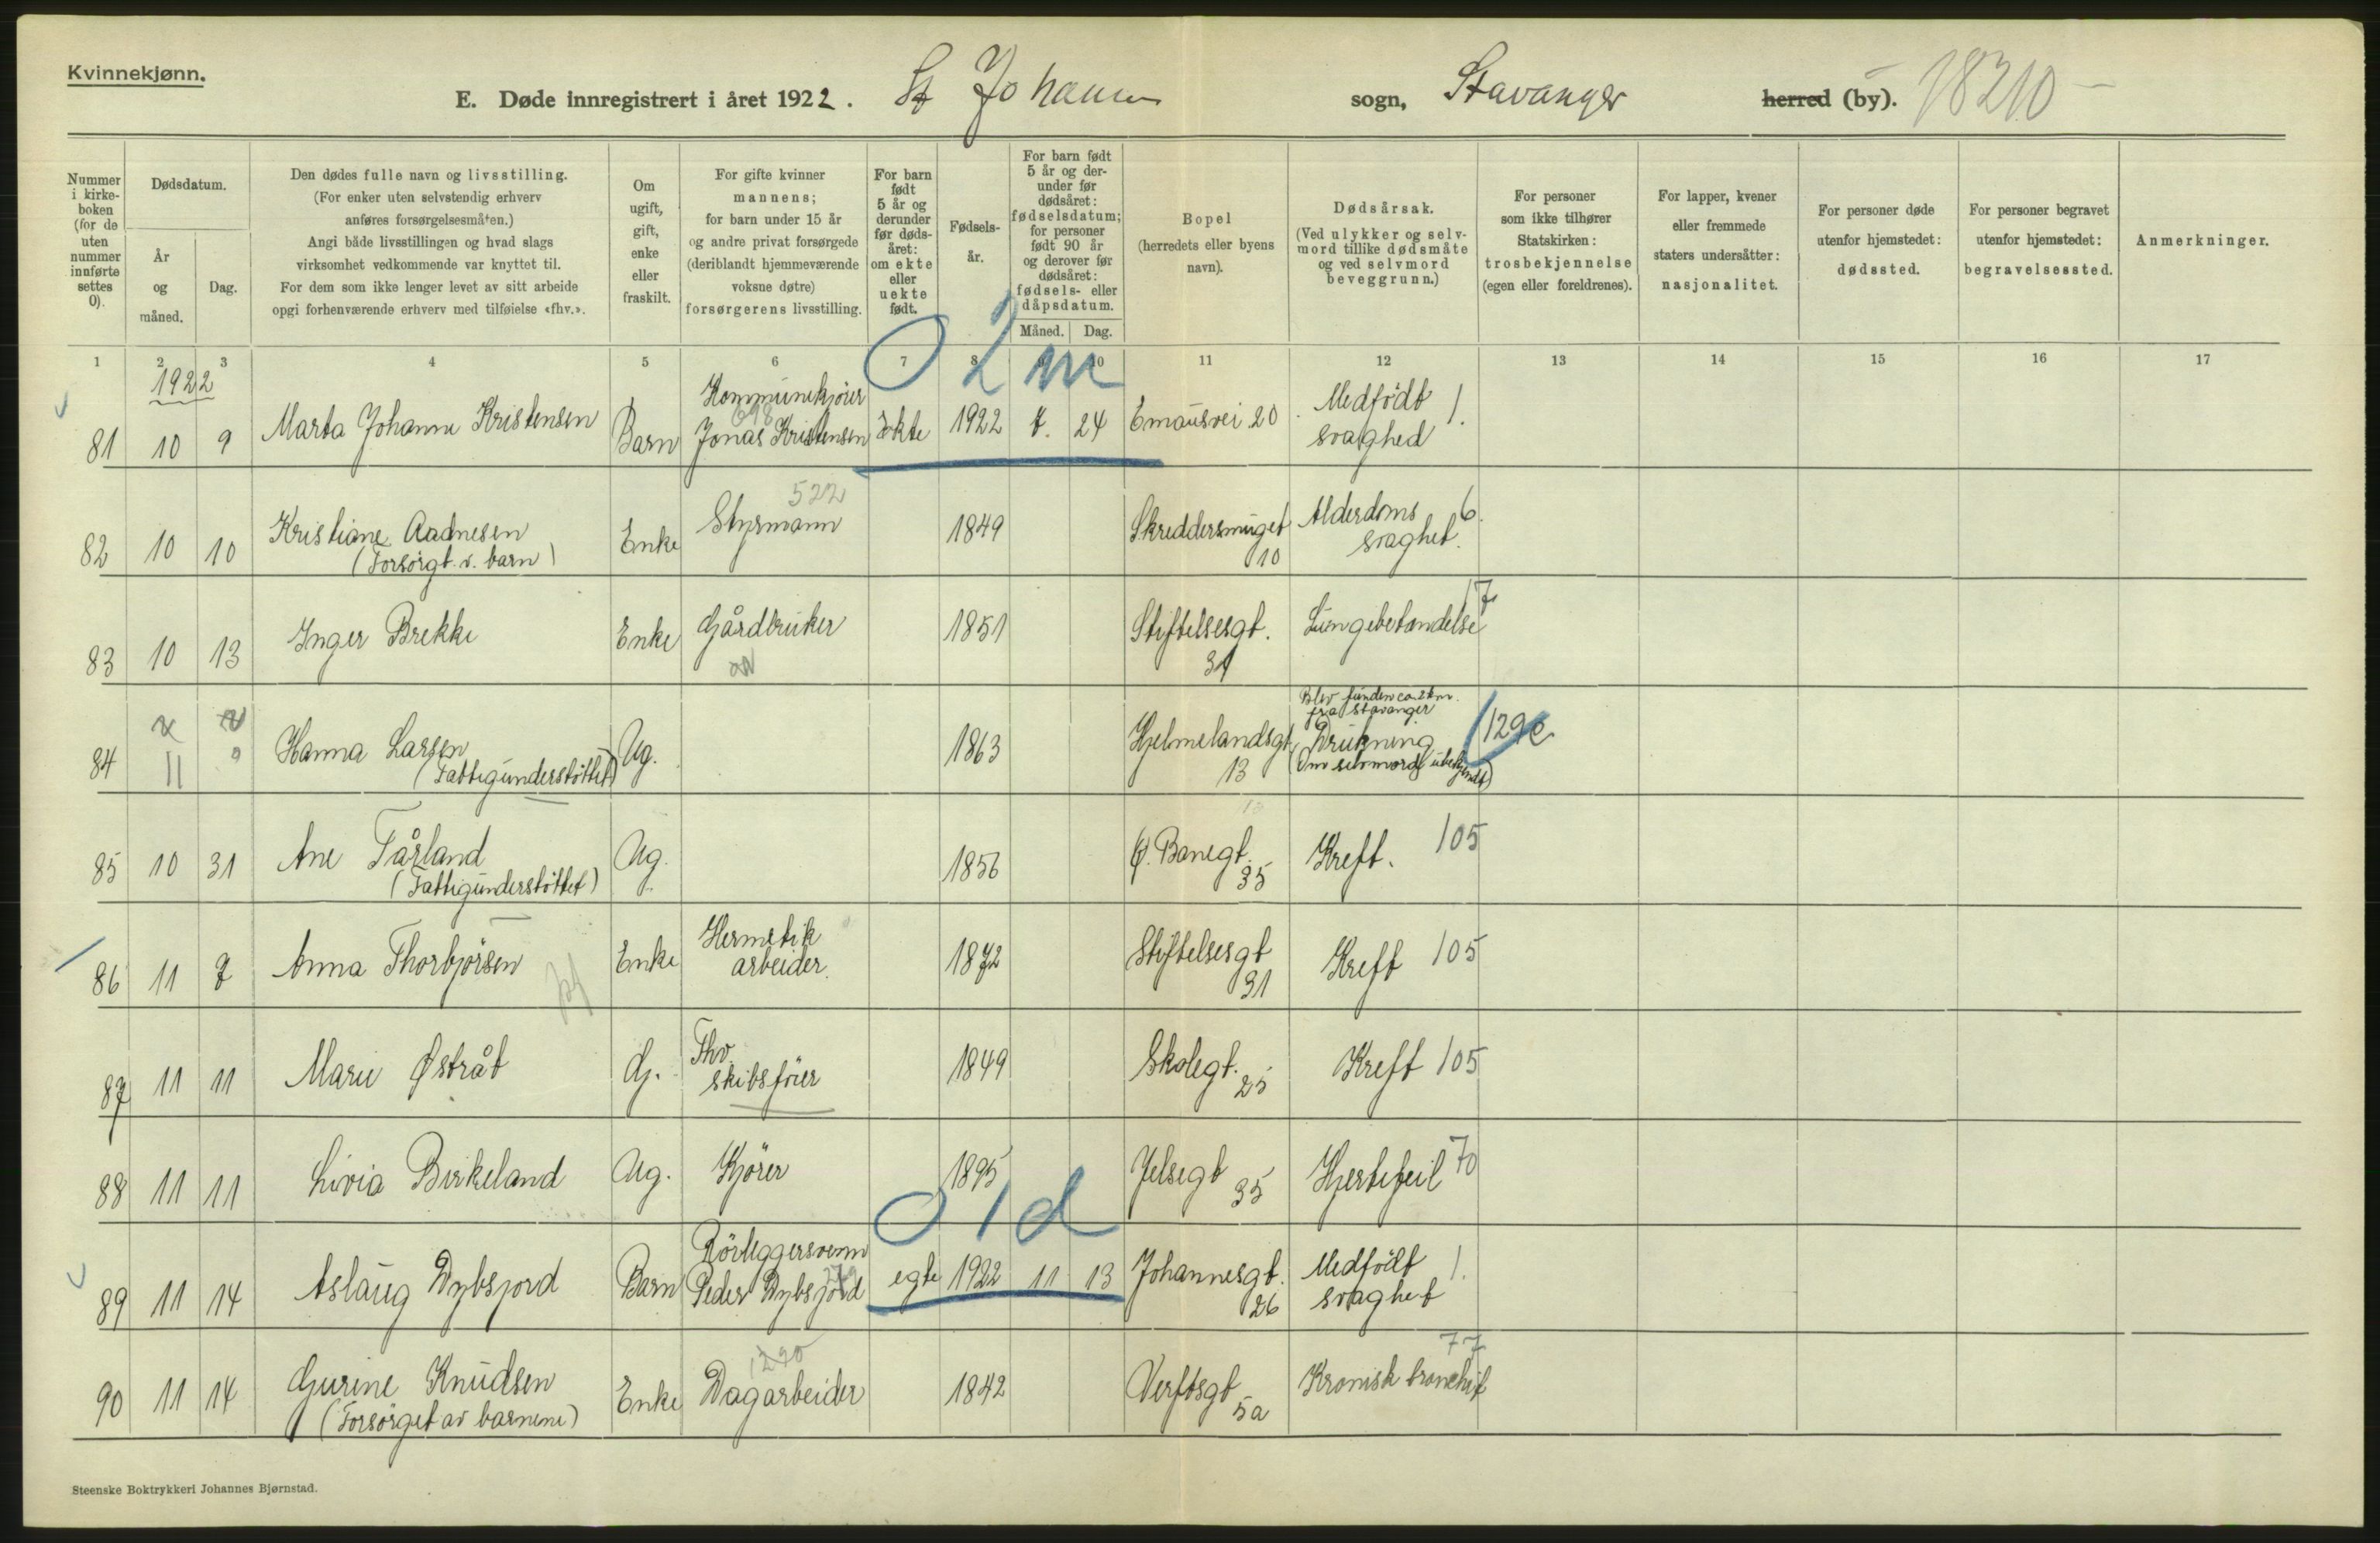 Kvinnekjønn.
E. Døde innregistrert i året 1922. St Johannes sogn, Stavanger herred (by). 18210
Nummer i kirkeboken (for de uten nummer innførte settes 0).
Dødsdatum.
År og måned.
Dag.
Den dødes fulle navn og livsstilling.
(For enker uten selvstendig erhverv
anføres forsørgelsesmåten.)
Angi både livsstillingen og hvad slags
virksomhet vedkommende var knyttet til.
For dem som ikke lenger levet av sitt arbeide
opgi forhenværende erhverv med tilføielse «fhv.».
Om ugift, gift, enke eller fraskilt.
For gifte kvinner
mannens;
for barn under 15 år
og andre privat forsørgede
(deriblandt hjemmeværende
voksne døtre)
forsørgerens livsstilling.
For barn født 5 år og derunder før dødsåret: om ekte eller uekte født.
Fødselsår.
For barn født 5 år og derunder før dødsåret: fødselsdatum; for personer født 90 år og derover før dødsåret: fødsels- eller dåpsdatum.
Måned. Dag.
Bopel
(herredets eller byens
navn).
Dødsårsak.
(Ved ulykker og selvmord tillike dødsmåte og ved selvmord beveggrunn.)
For personer
som ikke tilhører
Statskirken:
trosbekjennelse
(egen eller foreldrenes).
For lapper, kvener
eller fremmede
staters undersåtter:
nasjonalitet.
For personer døde
utenfor hjemstedet:
dødssted.
For personer begravet
utenfor hjemstedet:
begravelsessted.
Anmerkninger.
1 2 3 4 5 6 7 8 9 10 11 12 13 14 15 16 17
1922
0 2 m
81 10 9 Marta Johanne Kristensen Barn Kommunekjører Jonas Kristensen 698 Ekte 1922 8. 24 Emausvei 20 Medfødt svaghed 1.
82 10 10 Kristiane Aadnesen (Forsørgt. v. barn) Enke Styrmann 522 1849 Skreddersmuget 10 Alderdoms svaghet. 6.
83 10 13 Inger Brekke Enke Gårdbruker 1851 Stiftelsesgt. 31 Lungebetændelse
84 11 9 Hanna Larsen (Fattigunderstøttet) Ug. 1863 Hjelmelandsgt. 13 Blev funden ca. 2 km. fra Stavanger Drukning (Om selvmord ubekjendt) 129c
85 10 31 Ane Tårland (Fattigunderstøttet) Ug. 1856 Ø. Banegt. 35 Kreft. 105
86 11 7 Anna Thorbjørsen Enke Hermetik arbeider. 1872 Stiftelsesgt 31 Kreft 105
87 11 11 Marie Østråt G. Fhv. skibsfører 1849 Skolegt. 25 Kreft 105
88 11 11 Livia Birkeland Ug. Kjører 1895 Jelsegt 35 Hjertefeil 70
0 1 d
89 11 14 Aslaug Dybsjord Barn Rørleggersvenn Peder Dybsjord egte 1922 11 13 Johannesgt. 26 Medfødt svaghet 1.
90 11 14 Gurine Knudsen (Forsørget av barnene) Enke Dagarbeider 1290 1842 Verftsgt 5a Kronisk bronchit 77
Steenske Boktrykkeri Johannes Bjørnstad.